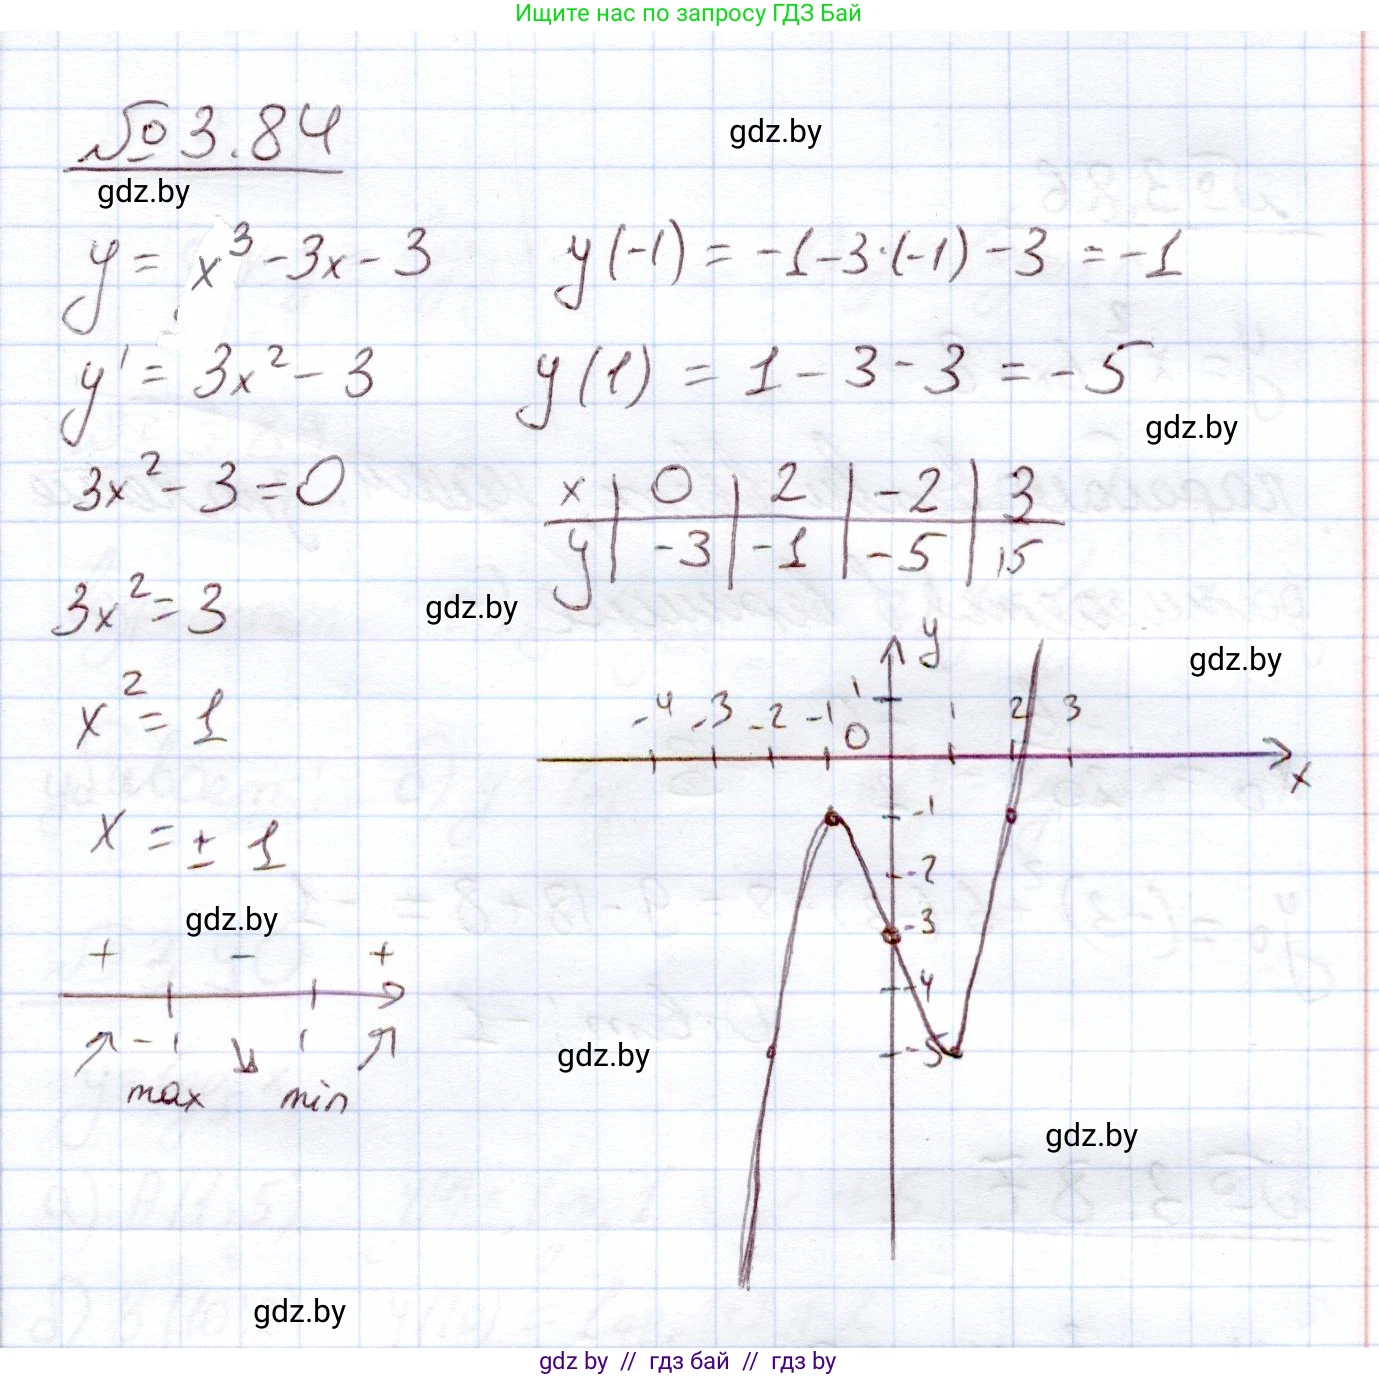 Ищите нас по запросу ГДЗ Бай
№ 3.84
gdz.by
gdz.by
y = x³ - 3x - 3
y(-1) = -1 - 3·(-1) - 3 = -1
y' = 3x² - 3
y(1) = 1 - 3 - 3 = -5
gdz.by
3x² - 3 = 0
x | 0 | 2 | -2 | 3
y | -3 | -1 | -5 | 15
3x² = 3
gdz.by
y
gdz.by
x² = 1
-4 -3 -2 -1 0 1 1 2 3
x
x = ± 1
-1
-2
gdz.by
-3
+ - +
-4
-1 1
-5
gdz.by
max min
gdz.by
gdz.by
gdz by // гдз бай // gdz by